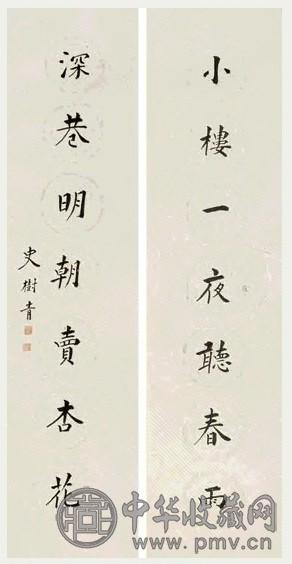 小樓一夜聽春雨
深巷明朝賣杏花
史樹青
中华收藏网
www.pmv.cn